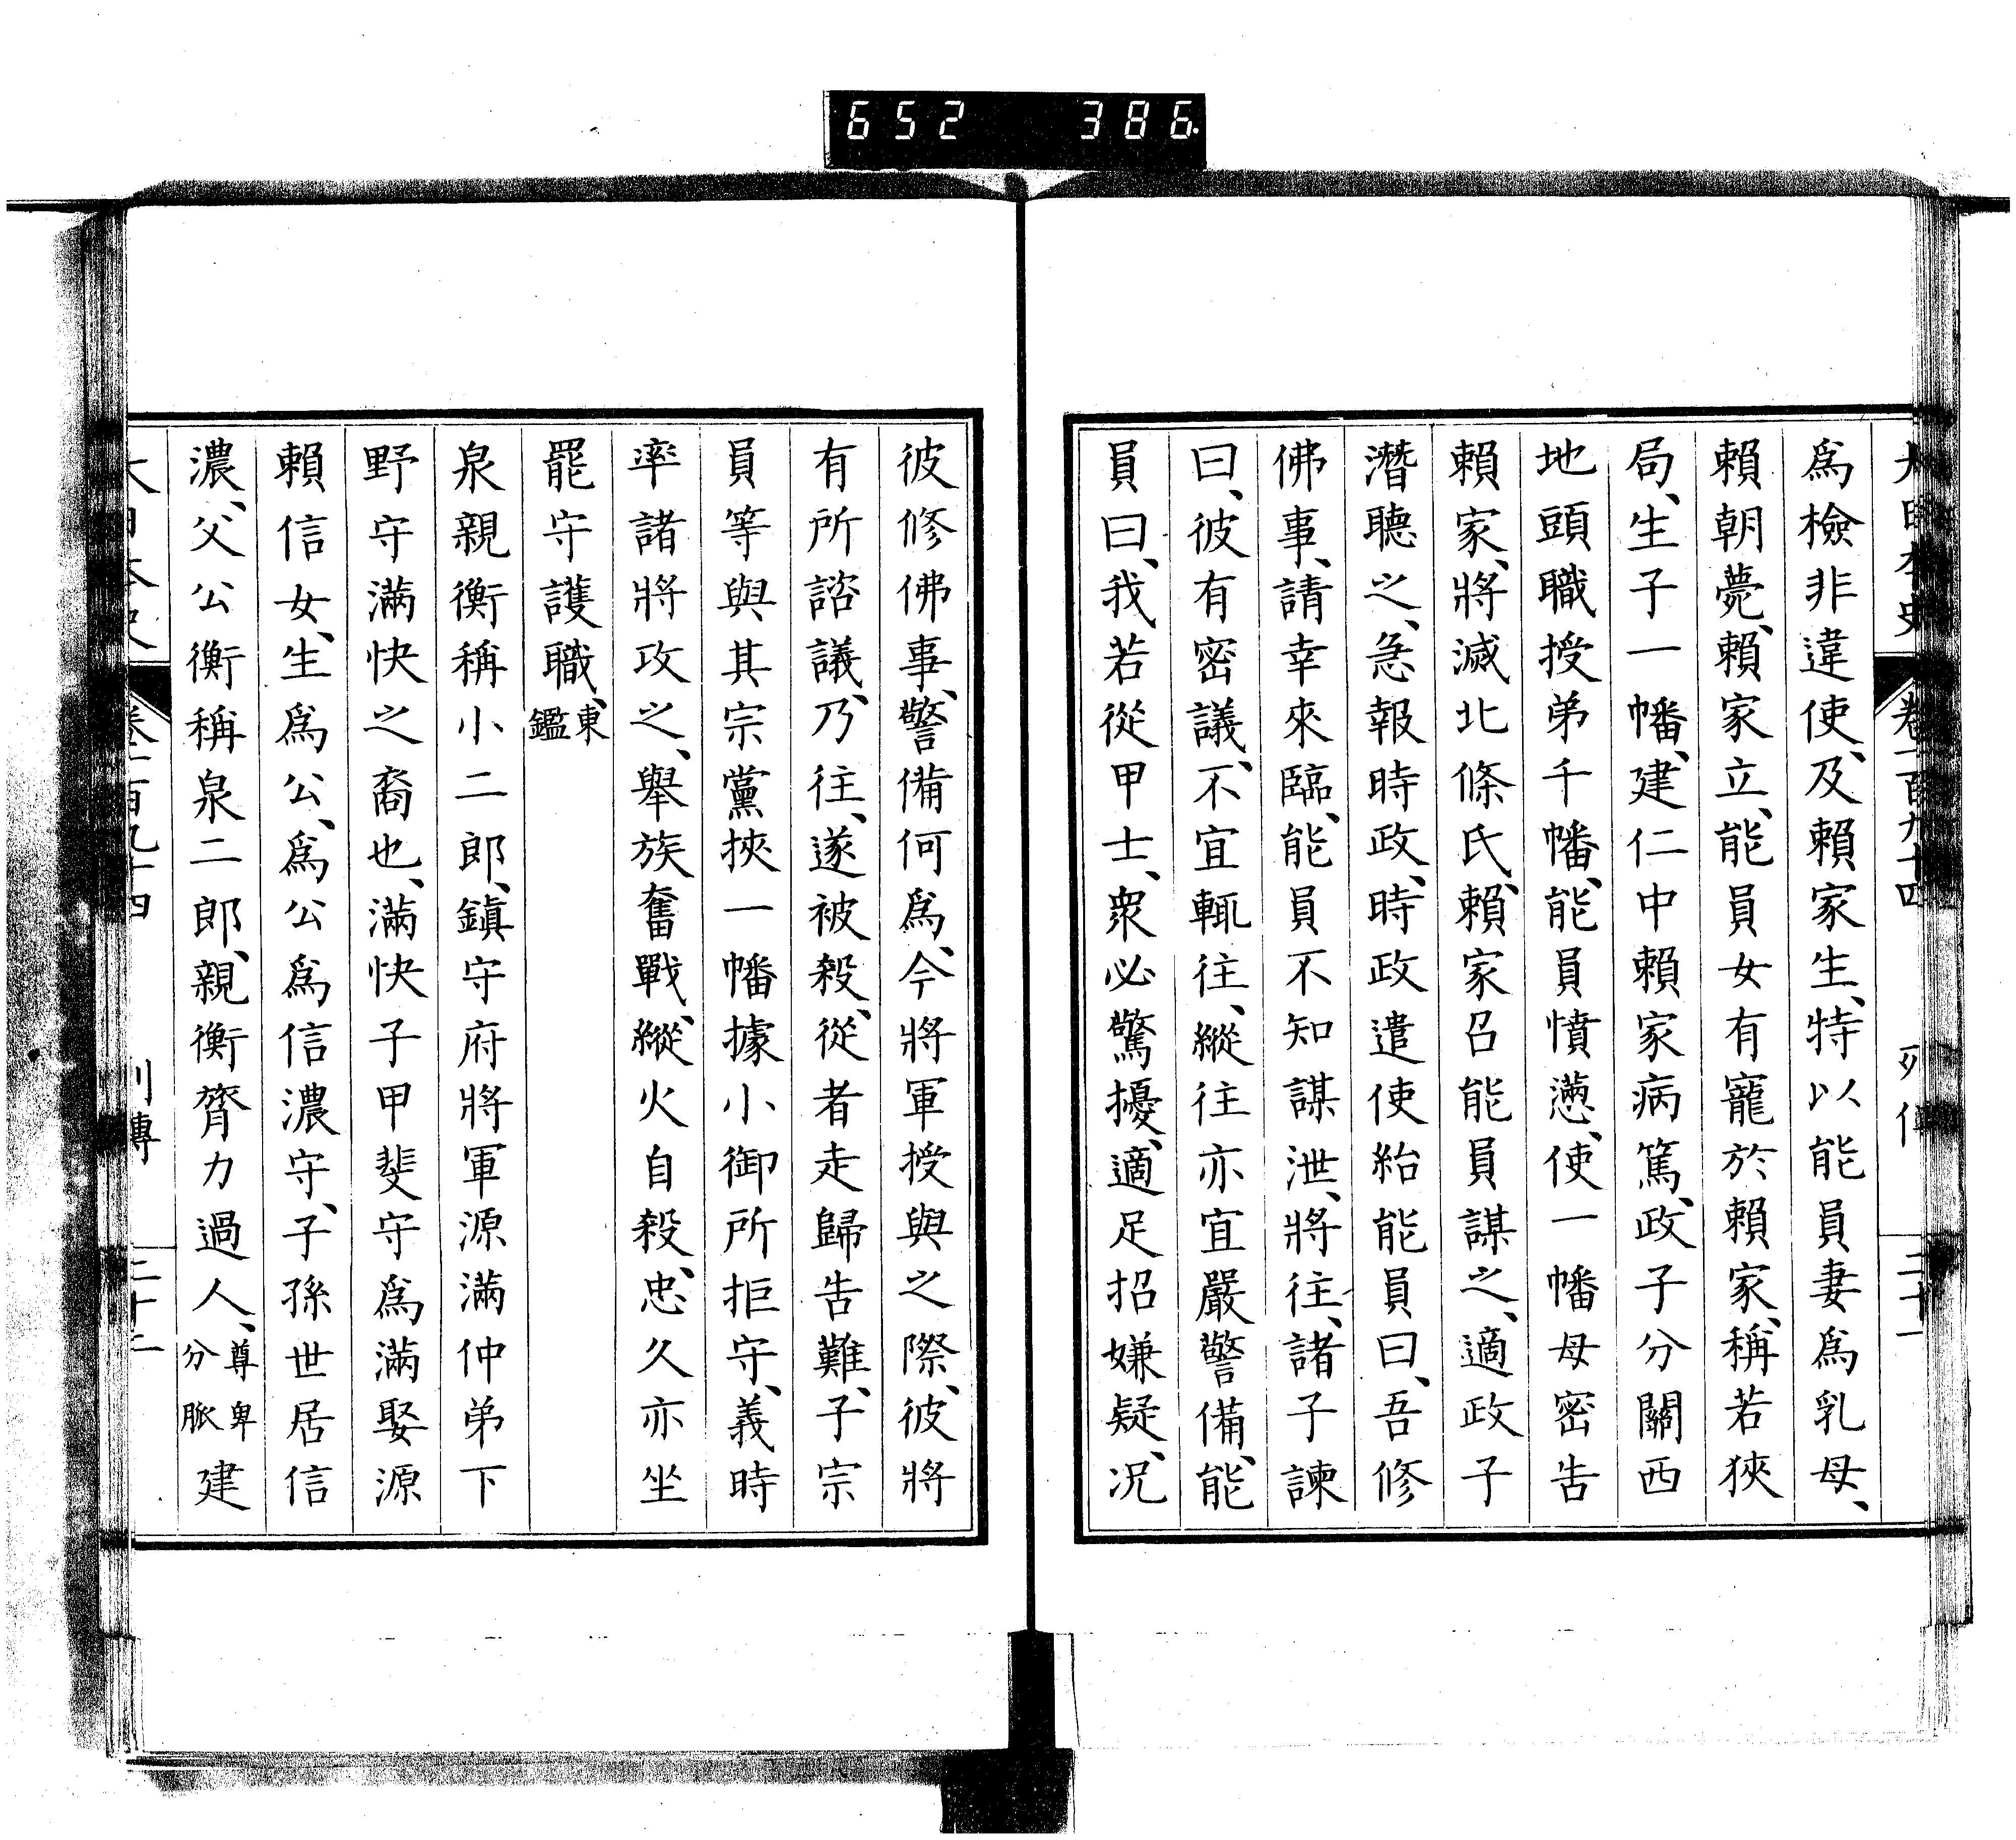 652 386
大日本史 卷一百九十四 列傳 二十一
爲檢非違使、及賴家生、特以能員妻爲乳母、
賴朝薨、賴家立、能員女有寵於賴家、稱若狹
局、生子一幡、建仁中賴家病篤、政子分關西
地頭職授弟千幡、能員憤懣、使一幡母密告
賴家、將滅北條氏、賴家召能員謀之、適政子
潛聽之、急報時政、時政遣使紿能員曰、吾修
佛事、請幸來臨、能員不知謀泄、將往、諸子諫
曰、彼有密議、不宜輒往、縱往亦宜嚴警備、能
員曰、我若從甲士、衆必驚擾、適足招嫌疑、况
彼修佛事、警備何爲、今將軍授與之際、彼將
有所諮議、乃往、遂被殺、從者走歸告難、子宗
員等與其宗黨挾一幡據小御所拒守、義時
率諸將攻之、擧族奮戰、縱火自殺、忠久亦坐
罷守護職、東鑑
泉親衡稱小二郎、鎭守府將軍源滿仲弟下
野守滿快之裔也、滿快子甲斐守爲滿娶源
賴信女、生爲公、爲公爲信濃守、子孫世居信
濃、父公衡稱泉二郎、親衡膂力過人、尊卑分脈 建
大日本史 卷一百九十四 列傳